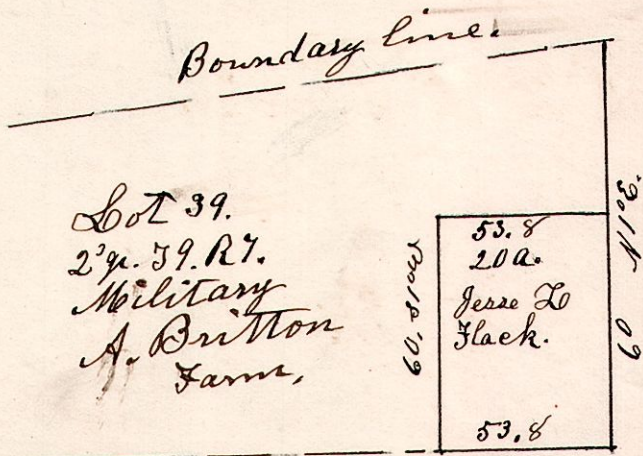 Boundary line.
Lot 39.
2ᵈ qr. T9. R7.
Military
A. Britton
Farm.
60.
53.8
20 a.
Jesse L
Flack.
53.8
N 3°
60